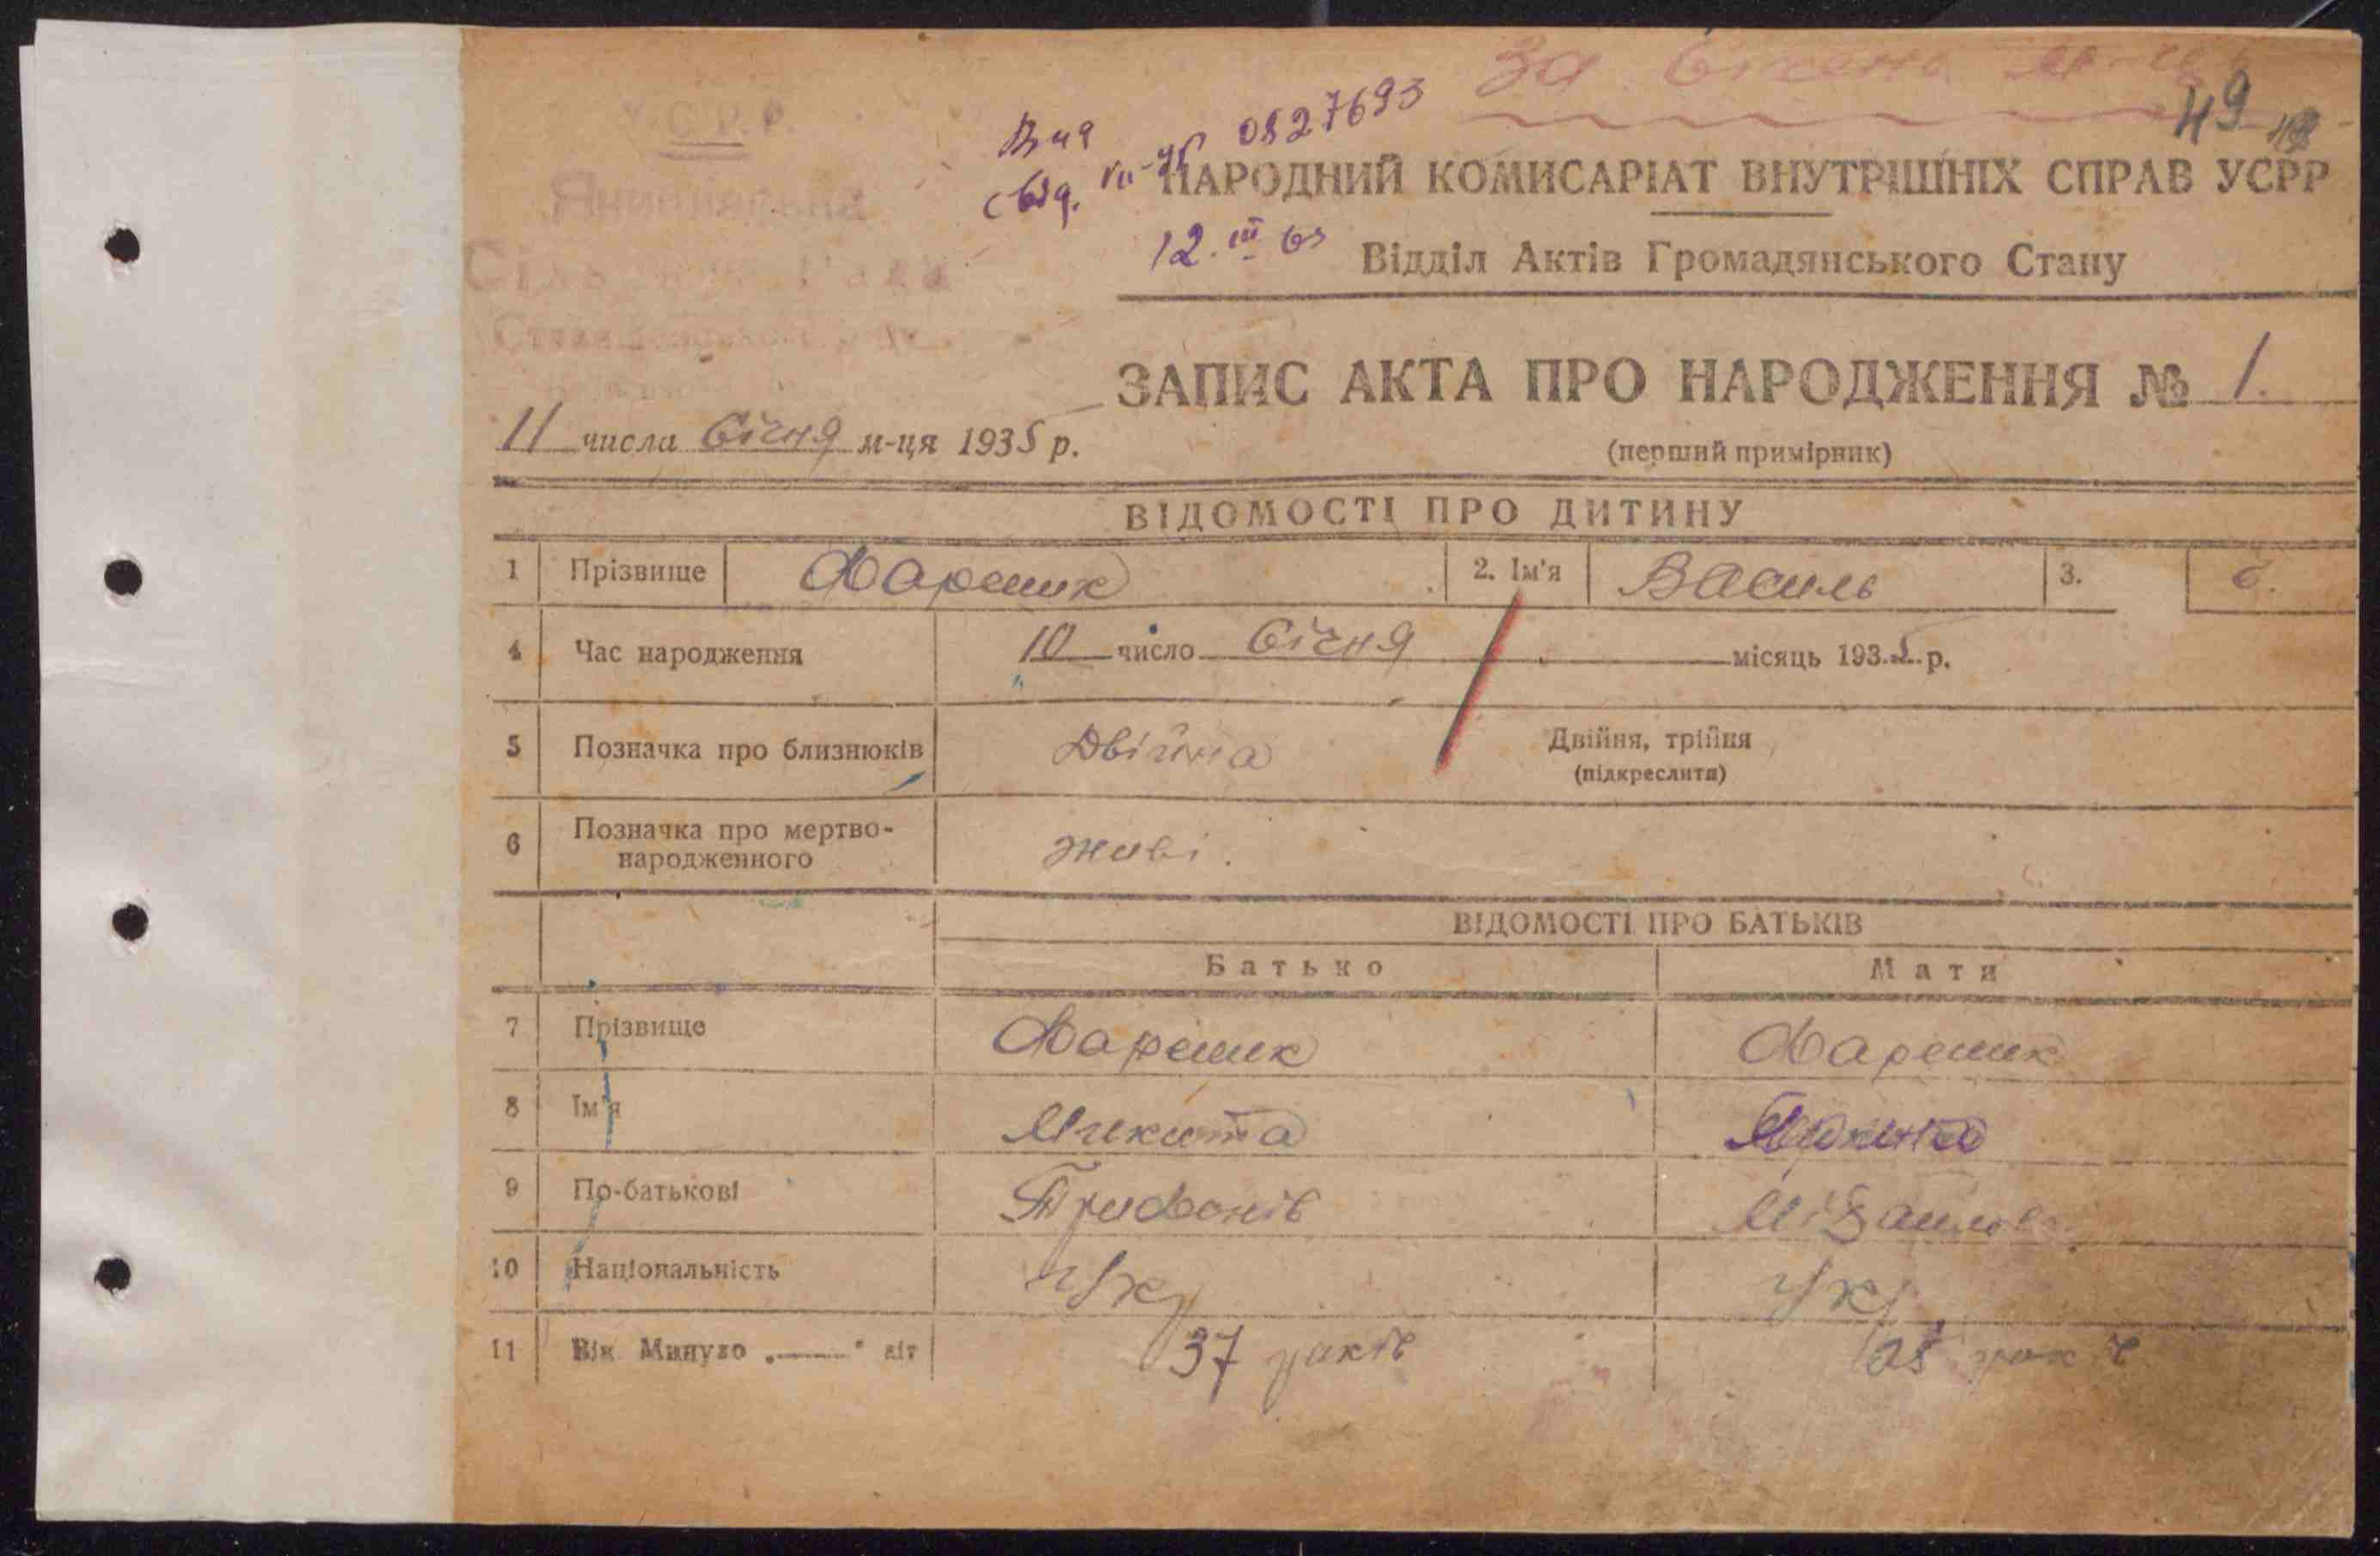 У.С.Р.Р.
За Січень м-ць
49
Вид
свід. УП-УР 0827693
12.III 63
НАРОДНИЙ КОМИСАРІАТ ВНУТРІШНІХ СПРАВ УСРР
Відділ Актів Громадянського Стану
ЗАПИС АКТА ПРО НАРОДЖЕННЯ № 1.
(перший примірник)
11 числа Січня м-ця 1935 р.
ВІДОМОСТІ ПРО ДИТИНУ
1 Прізвище Фарешик 2. Ім'я Василь 3. б.
4 Час народження 10 число Січня місяць 1935 р.
5 Позначка про близнюків Двійна Двійня, трійня
(підкреслити)
6 Позначка про мертво-
народженного живі.
ВІДОМОСТІ ПРО БАТЬКІВ
Батько Мати
7 Прізвище Фарешик Фарешик
8 Ім'я Микита
9 По-батькові Трифонів Міхайлов
10 Національність Укр Укр
11 Вік Минуло „——“ літ 37 років років